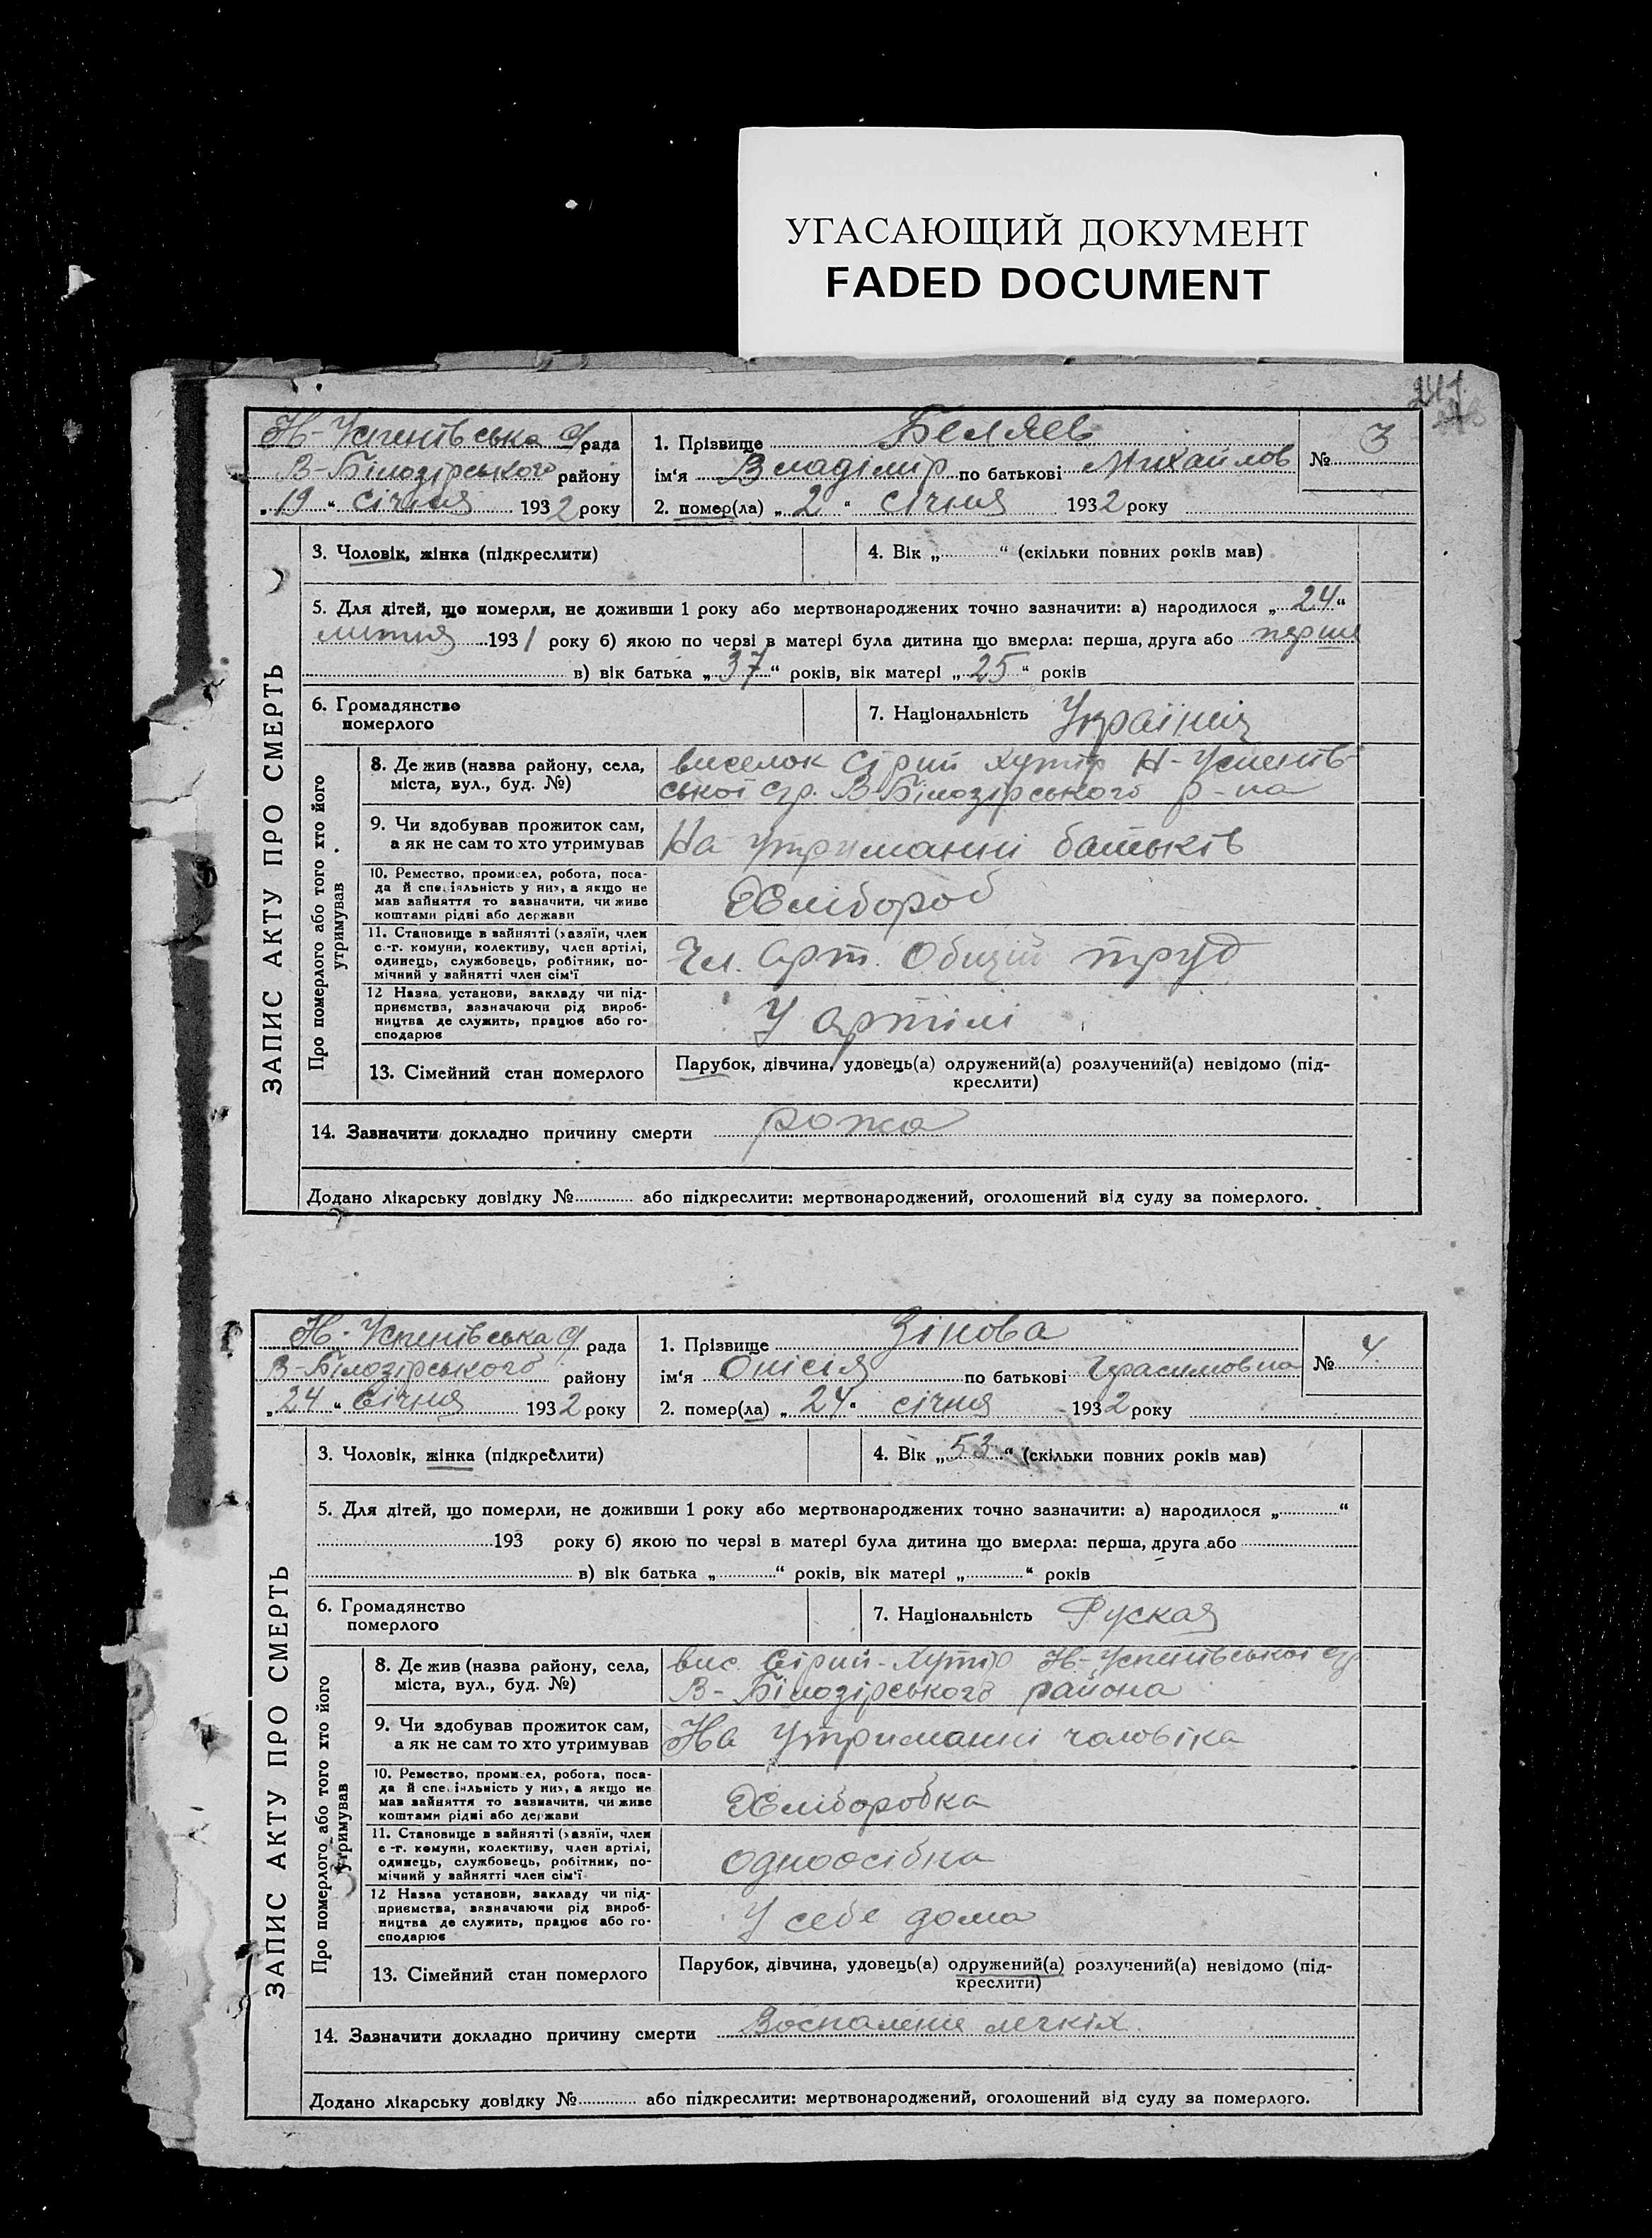 УГАСАЮЩИЙ ДОКУМЕНТ
FADED DOCUMENT
Н-Успенівська с/рада
В-Білозірського району
„19“ січня 1932 року
1. Прізвище Беляев
ім‘я Владімір по батькові Михайлов
№ 3
2. помер(ла) „2“ січня 1932 року
ЗАПИС АКТУ ПРО СМЕРТЬ
3. Чоловік, жінка (підкреслити)
4. Вік „ “ (скільки повних років мав)
5. Для дітей, що померли, не доживши 1 року або мертвонароджених точно зазначити: а) народилося „24“
1931 року б) якою по черзі в матері була дитина що вмерла: перша, друга або перша
в) вік батька „37“ років, вік матері „25“ років
6. Громадянство
померлого
7. Національність
Про померлого або того хто його
утримував
8. Де жив (назва району, села,
міста, вул., буд. №)
виселок Сірий хутір Н-Успенів-
ської с/р. В-Білозірського р-на
9. Чи здобував прожиток сам,
а як не сам то хто утримував
На утриманні батьків
10. Ремество, промисел, робота, поса-
да й спеціяльність у них, а якщо не
мав зайняття то зазначити, чи живе
коштами рідні або держави
Хлібороб
11. Становище в зайнятті (хазяїн, член
с.-г. комуни, колективу, член артілі,
одинець, службовець, робітник, по-
мічний у зайнятті член сім‘ї
Чл. арт. Общий труд
12 Назва установи, закладу чи під-
приємства, зазначаючи рід вироб-
ництва де служить, працює або го-
сподарює
У артілі
13. Сімейний стан померлого
Парубок, дівчина, удовець(а) одружений(а) розлучений(а) невідомо (під-
креслити)
14. Зазначити докладно причину смерти рожа
Додано лікарську довідку № або підкреслити: мертвонароджений, оголошений від суду за померлого.
Н-Успенівська с/рада
В-Білозірського району
„24“ Січня 1932 року
1. Прізвище Зінова
ім‘я Онісія по батькові Герасимовна
№ 4
2. помер(ла) „24“ січня 1932 року
ЗАПИС АКТУ ПРО СМЕРТЬ
3. Чоловік, жінка (підкреслити)
4. Вік „53“ (скільки повних років мав)
5. Для дітей, що померли, не доживши 1 року або мертвонароджених точно зазначити: а) народилося „ “
193 року б) якою по черзі в матері була дитина що вмерла: перша, друга або
в) вік батька „ “ років, вік матері „ “ років
6. Громадянство
померлого
7. Національність Руская
Про померлого або того хто його
утримував
8. Де жив (назва району, села,
міста, вул., буд. №)
вис. Сірий-Хутір Н-Успенівської с/р
В-Білозірського района
9. Чи здобував прожиток сам,
а як не сам то хто утримував
На утриманні чоловіка
10. Ремество, промисел, робота, поса-
да й спеціяльність у них, а якщо не
мав зайняття то зазначити, чи живе
коштами рідні або держави
Хліборобка
11. Становище в зайнятті (хазяїн, член
с-г. комуни, колективу, член артілі,
одинець, службовець, робітник, по-
мічний у зайнятті член сім‘ї
одноосібна
12 Назва установи, закладу чи під-
приємства, зазначаючи рід вироб-
ництва де служить, працює або го-
сподарює
У себе дома
13. Сімейний стан померлого
Парубок, дівчина, удовець(а) одружений(а) розлучений(а) невідомо (під-
креслити)
14. Зазначити докладно причину смерти Воспаление легкіх.
Додано лікарську довідку № або підкреслити: мертвонароджений, оголошений від суду за померлого.